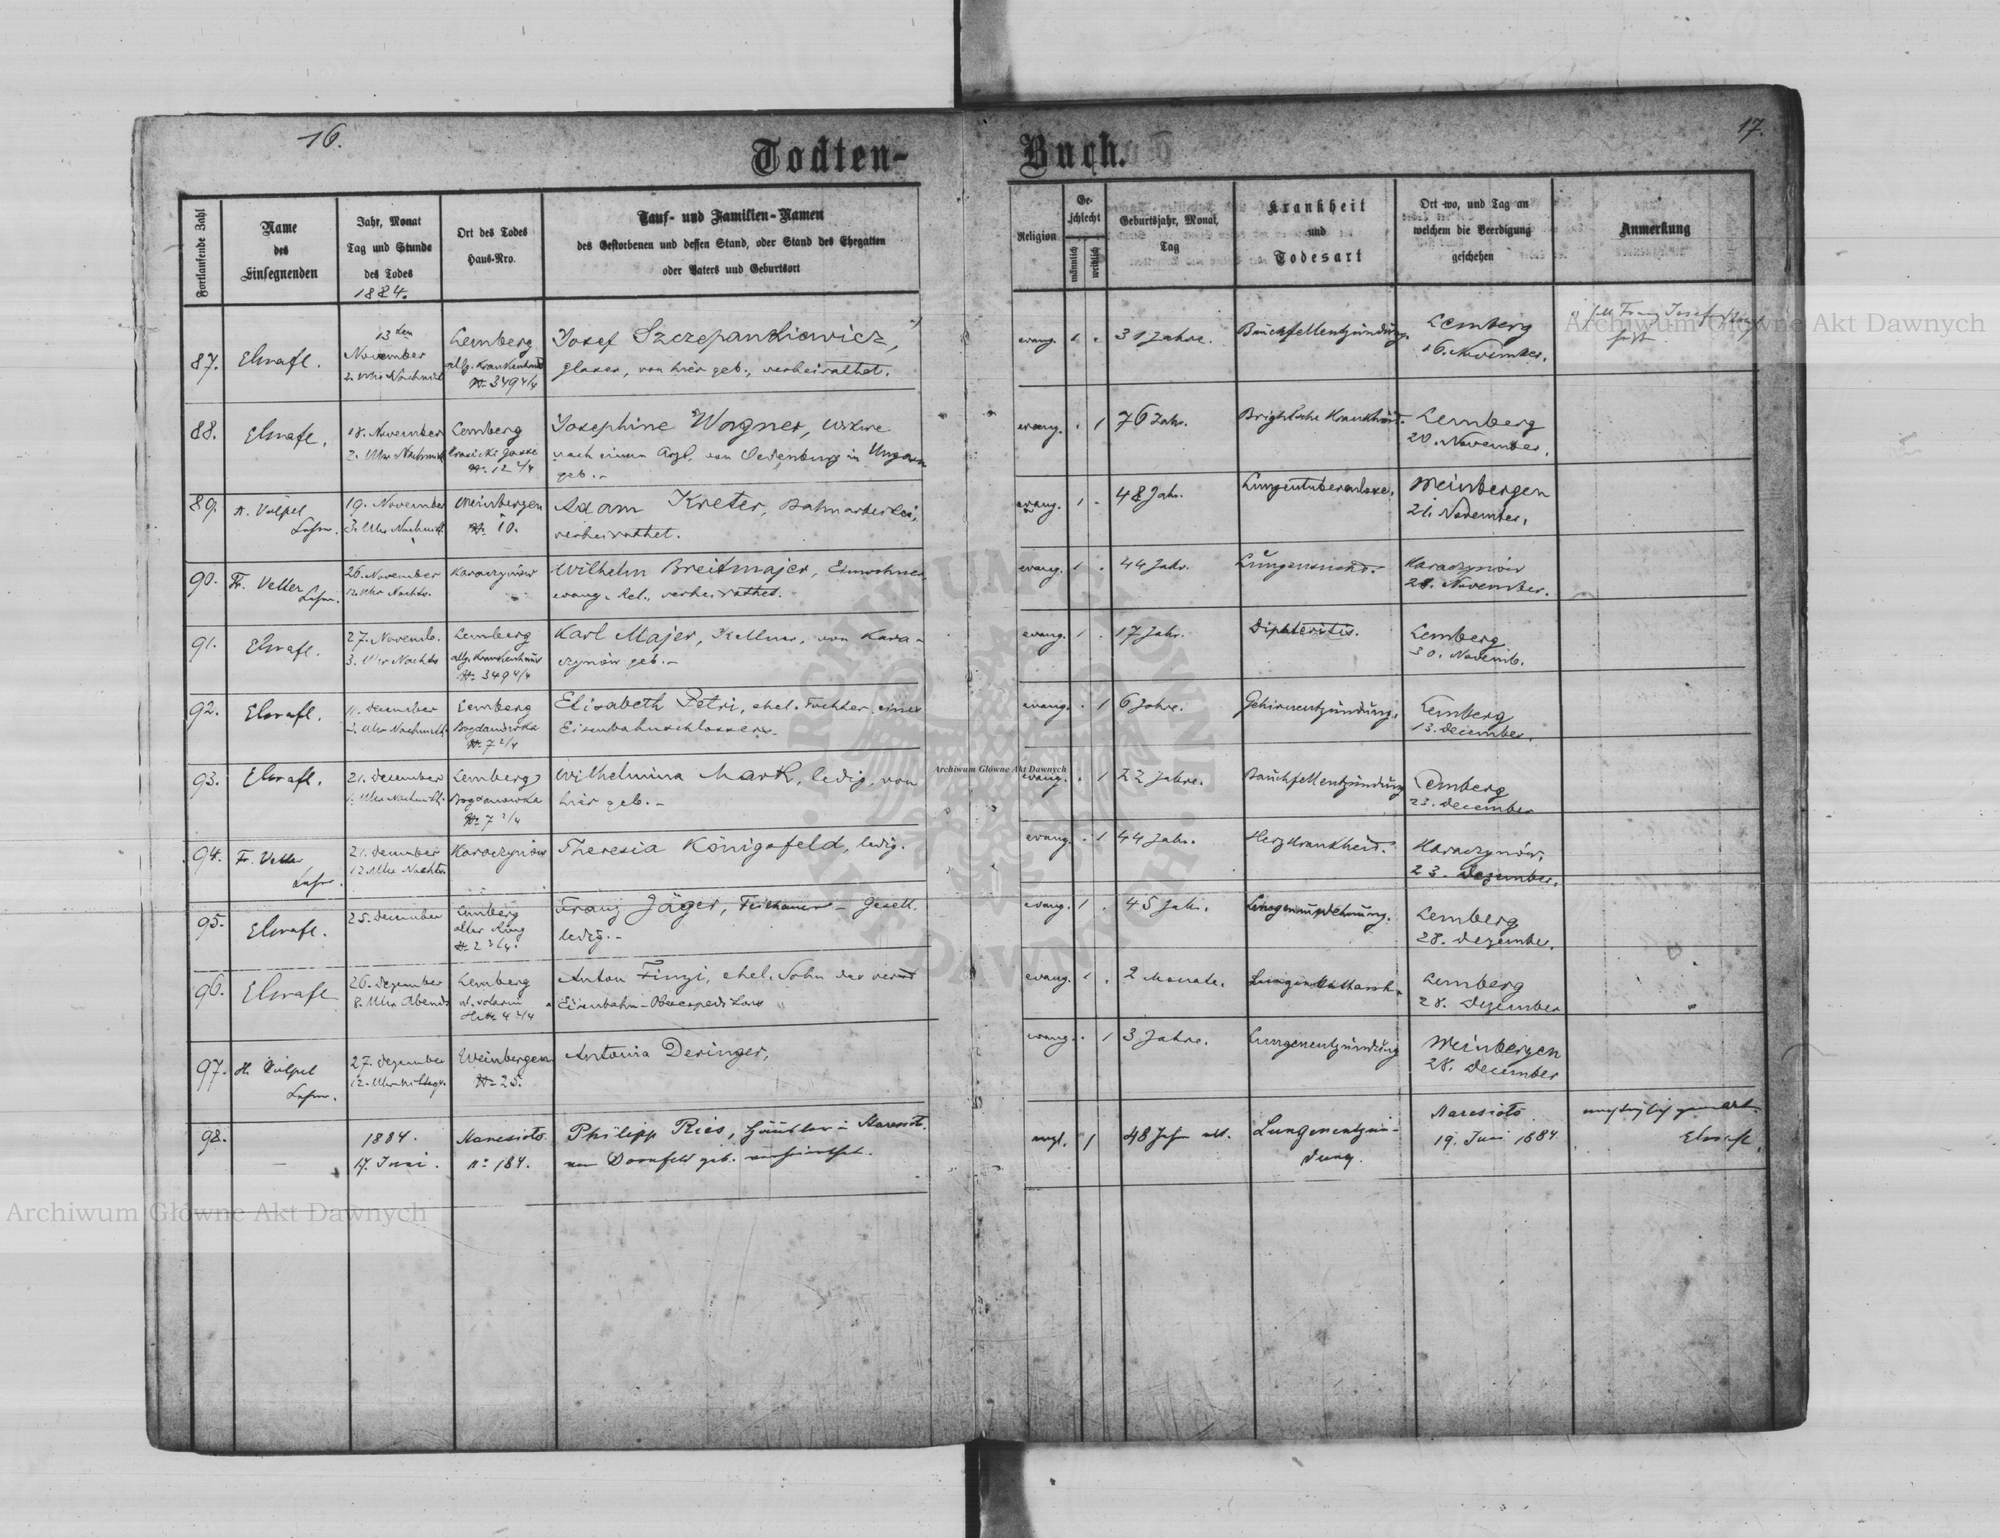 16.
Todten-
Buch.
17.
Fortlaufende Zahl
Name
des
Einsegnenden
Jahr, Monat
Tag und Stunde
des Todes
1884.
Ort des Todes
Haus-Nro.
Tauf- und Familien-Namen
des Gestorbenen und dessen Stand, oder Stand des Ehegatten
oder Vaters und Geburtsort
Religion
Ge-
schlecht
männlich
weiblich
Geburtsjahr, Monat,
Tag
Krankheit
und
Todesart
Ort wo, und Tag an
welchem die Beerdigung
geschehen
Anmerkung
87.
13ten
November
2. Uhr Nachmitt
Lemberg
allg. Krankenhaus
N. 349 4/4
Josef Szczepankiewicz,
Glaser, von hier geb., verheirathet.
evang. 1 .
31 Jahre.
Bauchfellentzündung.
Lemberg
16. November.
Franz Josef
88.
18. November
2. Uhr Nachmitt
Lemberg
Gasse
N. 12 2/4
Josephine Wagner, Witwe
nach einem von Oedenburg in Ungarn
geb. -
evang. . 1
76 Jahr.
Bright'sche Krankheit.
Lemberg
20. November.
89.
Lehrer.
19. November
3. Uhr Nachmitt.
Weinbergen
N. 10.
Adam Kreter, Bahnarbeiter,
verheirathet.
evang. 1 .
48 Jahr.
Lungentuberculose,
Weinbergen
21. November.
90.
Fr. Vetter
Lehrer.
26. November
12. Uhr Nachts.
Karaczynów
Wilhelm Breitmajer, Einwohner
evang. Rel., verheirathet.
evang. 1 .
44 Jahr.
Karaczynów
28. November.
91.
27. Novemb.
3. Uhr Nachts
Lemberg
allg. Krankenhaus
N. 349 4/4
Karl Majer, Kellner, von Kara-
czynów geb. -
evang. 1 .
17 Jahr.
Diphteritis.
Lemberg
30. Novemb.
92.
11. December
2. Uhr Nachmitt.
Lemberg
Bogdanówka
N. 7 2/4
Elisabeth Petri, ehel. Tochter eines
Eisenbahnschlossers.
evang. . 1
6 Jahre.
Gehirnentzündung.
Lemberg
13. December.
93.
21. December
1. Uhr Nachmitt.
Lemberg
Bogdanówka
N. 7 2/4
Wilhelmina Mark, ledig, von
hier geb. -
evang. . 1
22 Jahre.
Bauchfellentzündung
Lemberg
23. December
94.
Fr. Vetter
Lehrer.
21. December
12. Uhr Nachts.
Karaczynów
Theresia Königsfeld, ledig.
evang. . 1
44 Jahr.
Herzkrankheit.
Karaczynów,
23. Dezember.
95.
25. December
Lemberg
alter Ring
N. 2 3/4.
Franz Jäger, Feilhauer-Gesell.
ledig. -
evang. 1 .
45 Jahr.
Lemberg
28. Dezember.
96.
26. Dezember
8. Uhr Abends
Lemberg
N. 4 2/4
Anton Finzi, ehel. Sohn des
Eisenbahn-Oberexpeditors
evang. 1 .
2 Monate.
Lemberg
28. Dezember
97.
Lehrer.
27. Dezember
12. Uhr Mittags.
Weinbergen
N. 25.
Antonia Deringer,
evang. . 1
3 Jahre.
Lungenentzündung
Weinbergen
28. December
98.
1884.
17. Juni.
N. 184.
Philipp Ries, Häusler in
von Dornfeld geb. verheirathet.
1
48 Jahr alt.
Lungenentzün-
dung.
19. Juni 1884
Archiwum Główne Akt Dawnych
Archiwum Główne Akt Dawnych
Archiwum Główne Akt Dawnych
ARCHIWUM GŁÓWNE AKT DAWNYCH